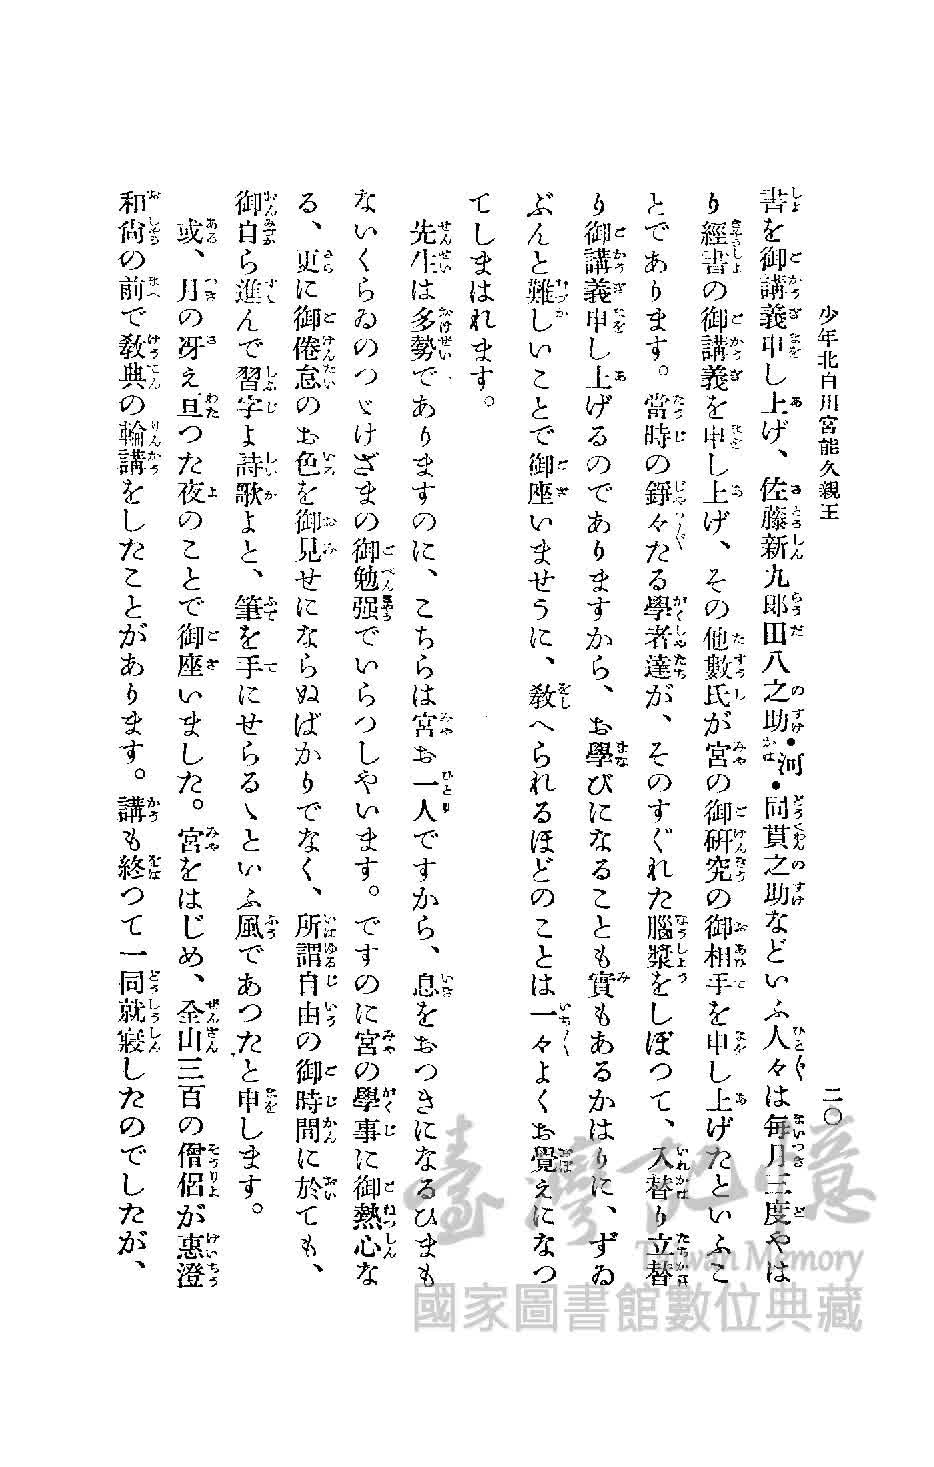 少年北白川宮能久親王
二〇
書を御講義申し上げ、佐藤新九郎田八之助・河・同貫之助などいふ人々は每月三度やは
り經書の御講義を申し上げ、その他數氏が宮の御硏究の御相手を申し上げたといふこ
とであります。當時の錚々たる學者達が、そのすぐれた腦漿をしぼつて、入替り立替
り御講義申し上げるのでありますから、お學びになることも實もあるかはりに、ずゐ
ぶんと難しいことで御座いませうに、敎へられるほどのことは一々よくお覺えになつ
てしまはれます。
先生は多勢でありますのに、こちらは宮お一人ですから、息をおつきになるひまも
ないくらゐのつゞけざまの御勉强でいらつしやいます。ですのに宮の學事に御熱心な
る、更に御倦怠のお色を御見せにならぬばかりでなく、所謂自由の御時間に於ても、
御自ら進んで習字よ詩歌よと、筆を手にせらるゝといふ風であつたと申します。
或、月の冴え亘つた夜のことで御座いました。宮をはじめ、全山三百の僧侶が惠澄
和尙の前で敎典の輪講をしたことがあります。講も終つて一同就寢したのでしたが、
臺灣記憶
Taiwan Memory
國家圖書館數位典藏